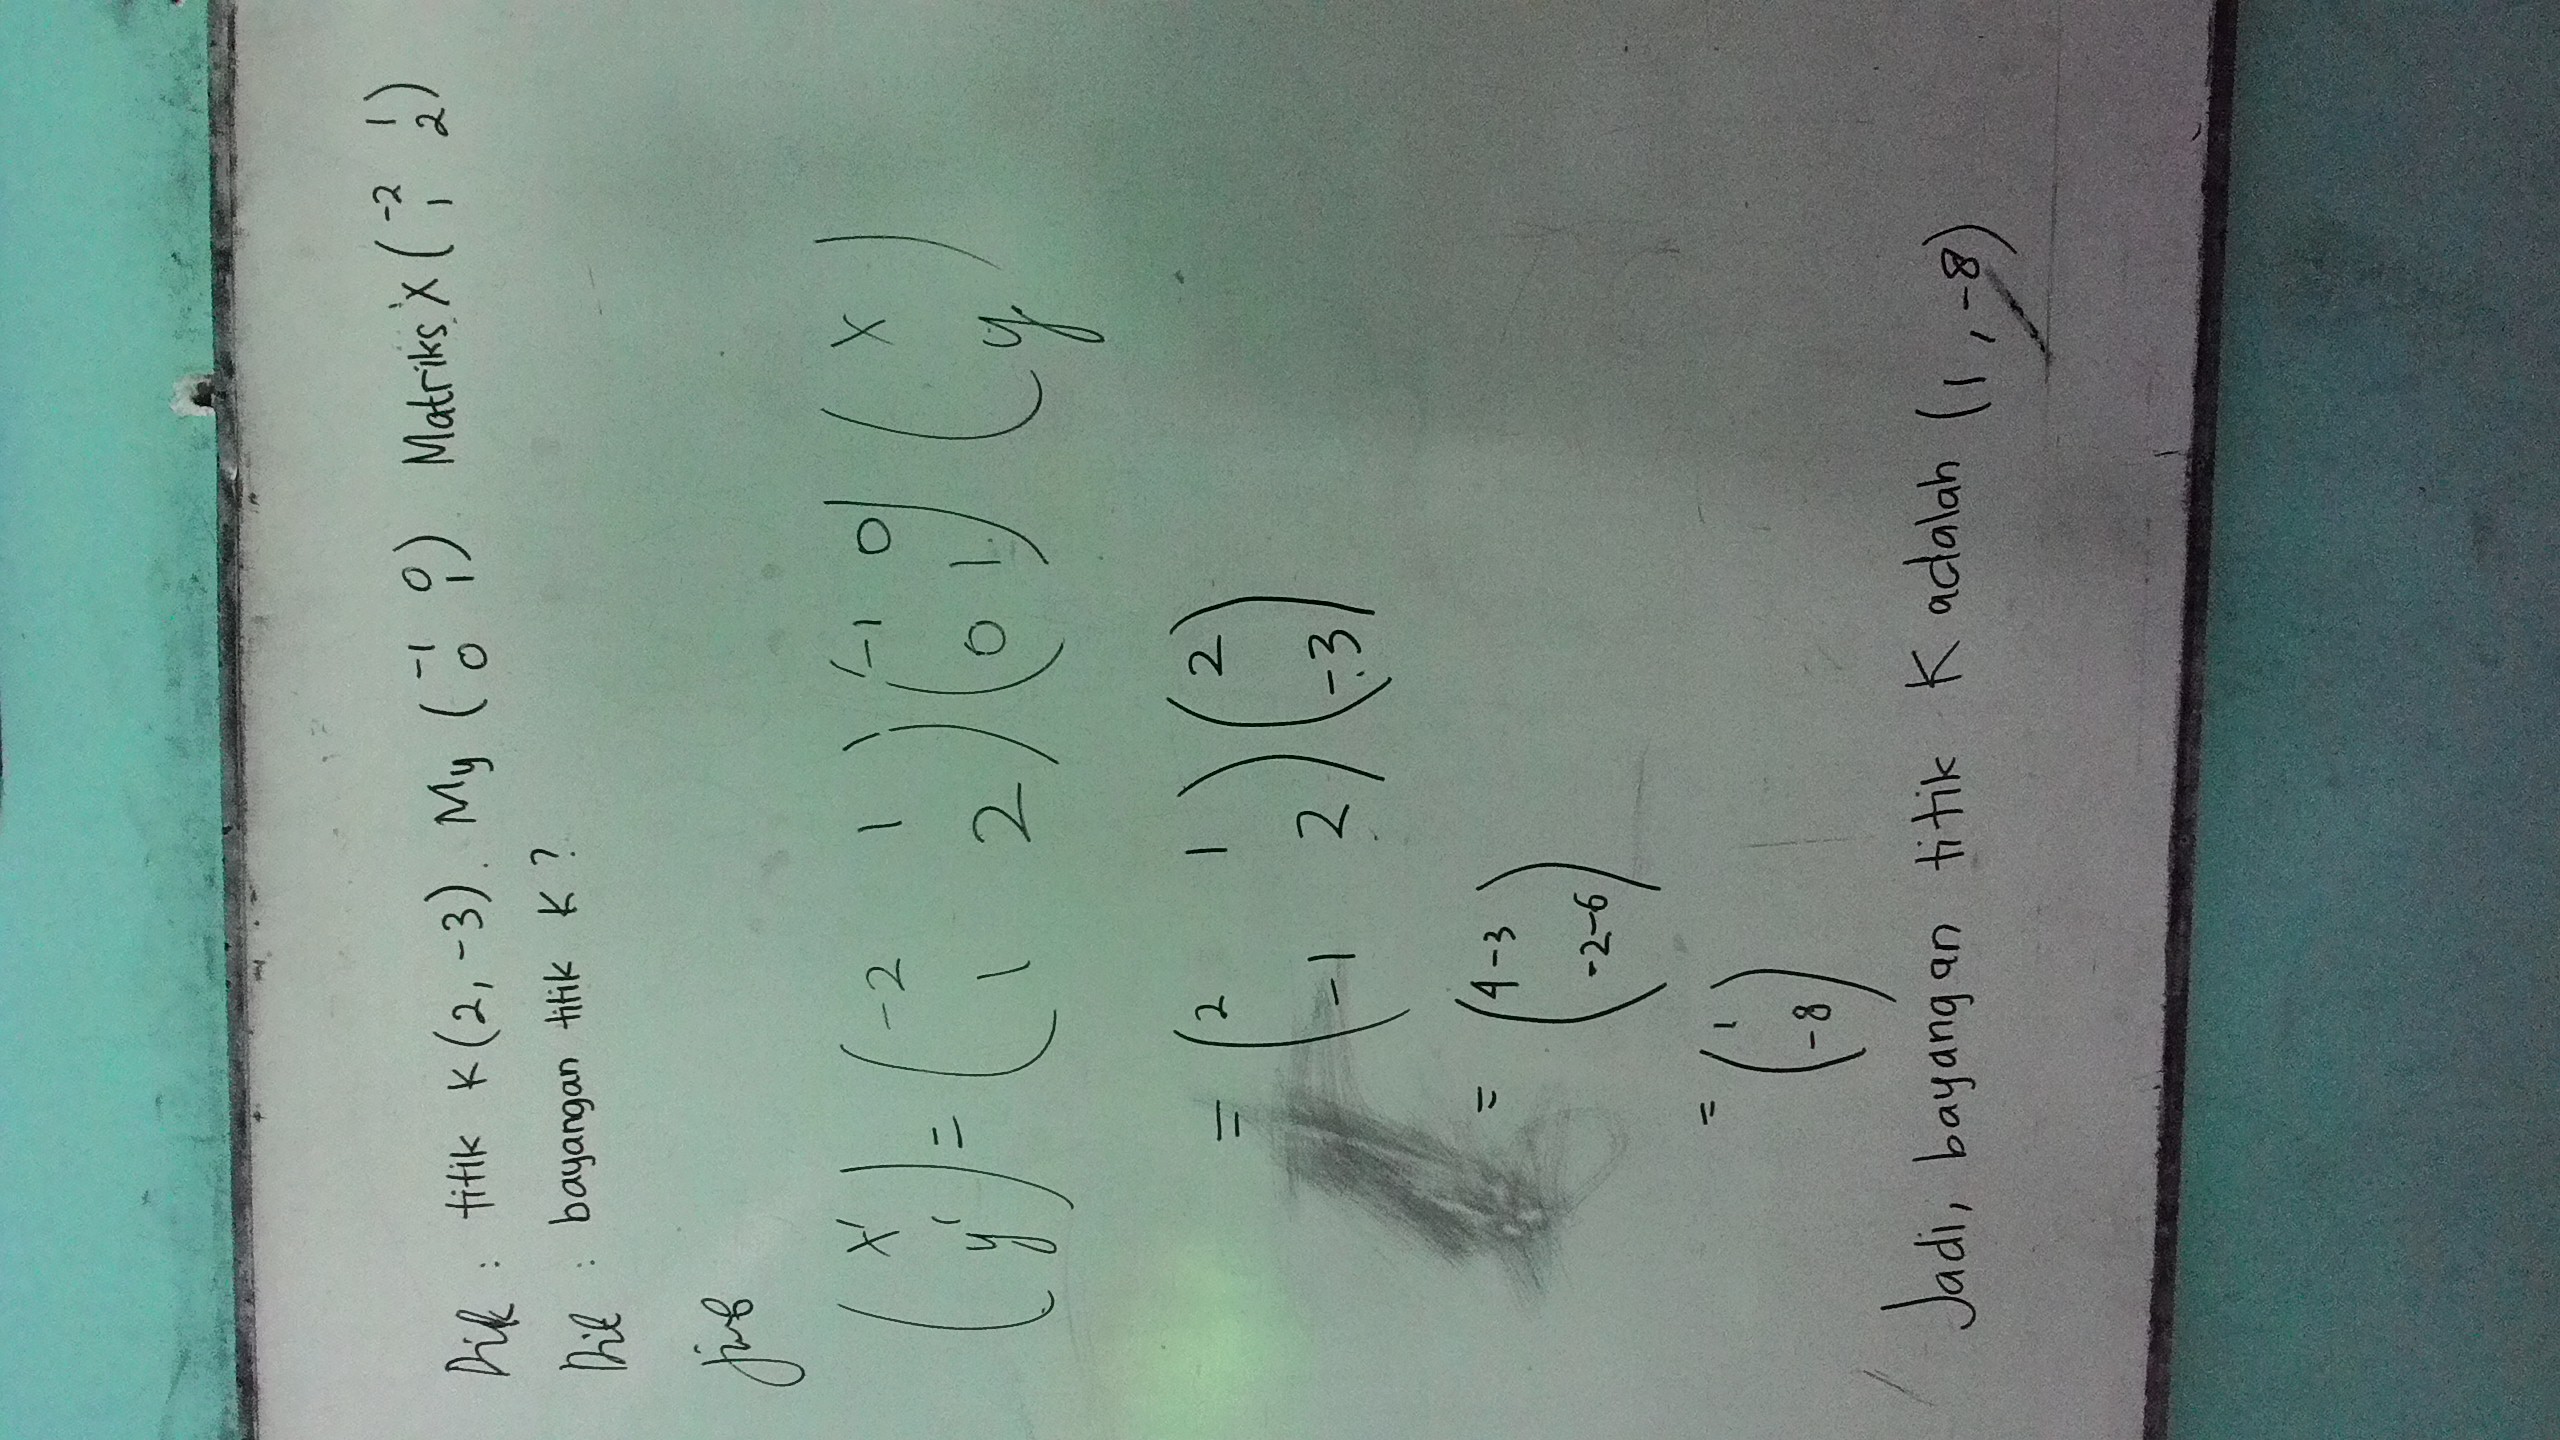 Dik : titik K(2, -3). My (-1 0 0 1) Matriks X (-2 1 1 2)
Dit : bayangan titik K ?
jwb
(x' y') = (-2 1 1 2) (-1 0 0 1) (x y)
= (2 1 -1 2) (2 -3)
= (4-3 -2-6)
= (1 -8)
Jadi, bayangan titik K adalah (1, -8)